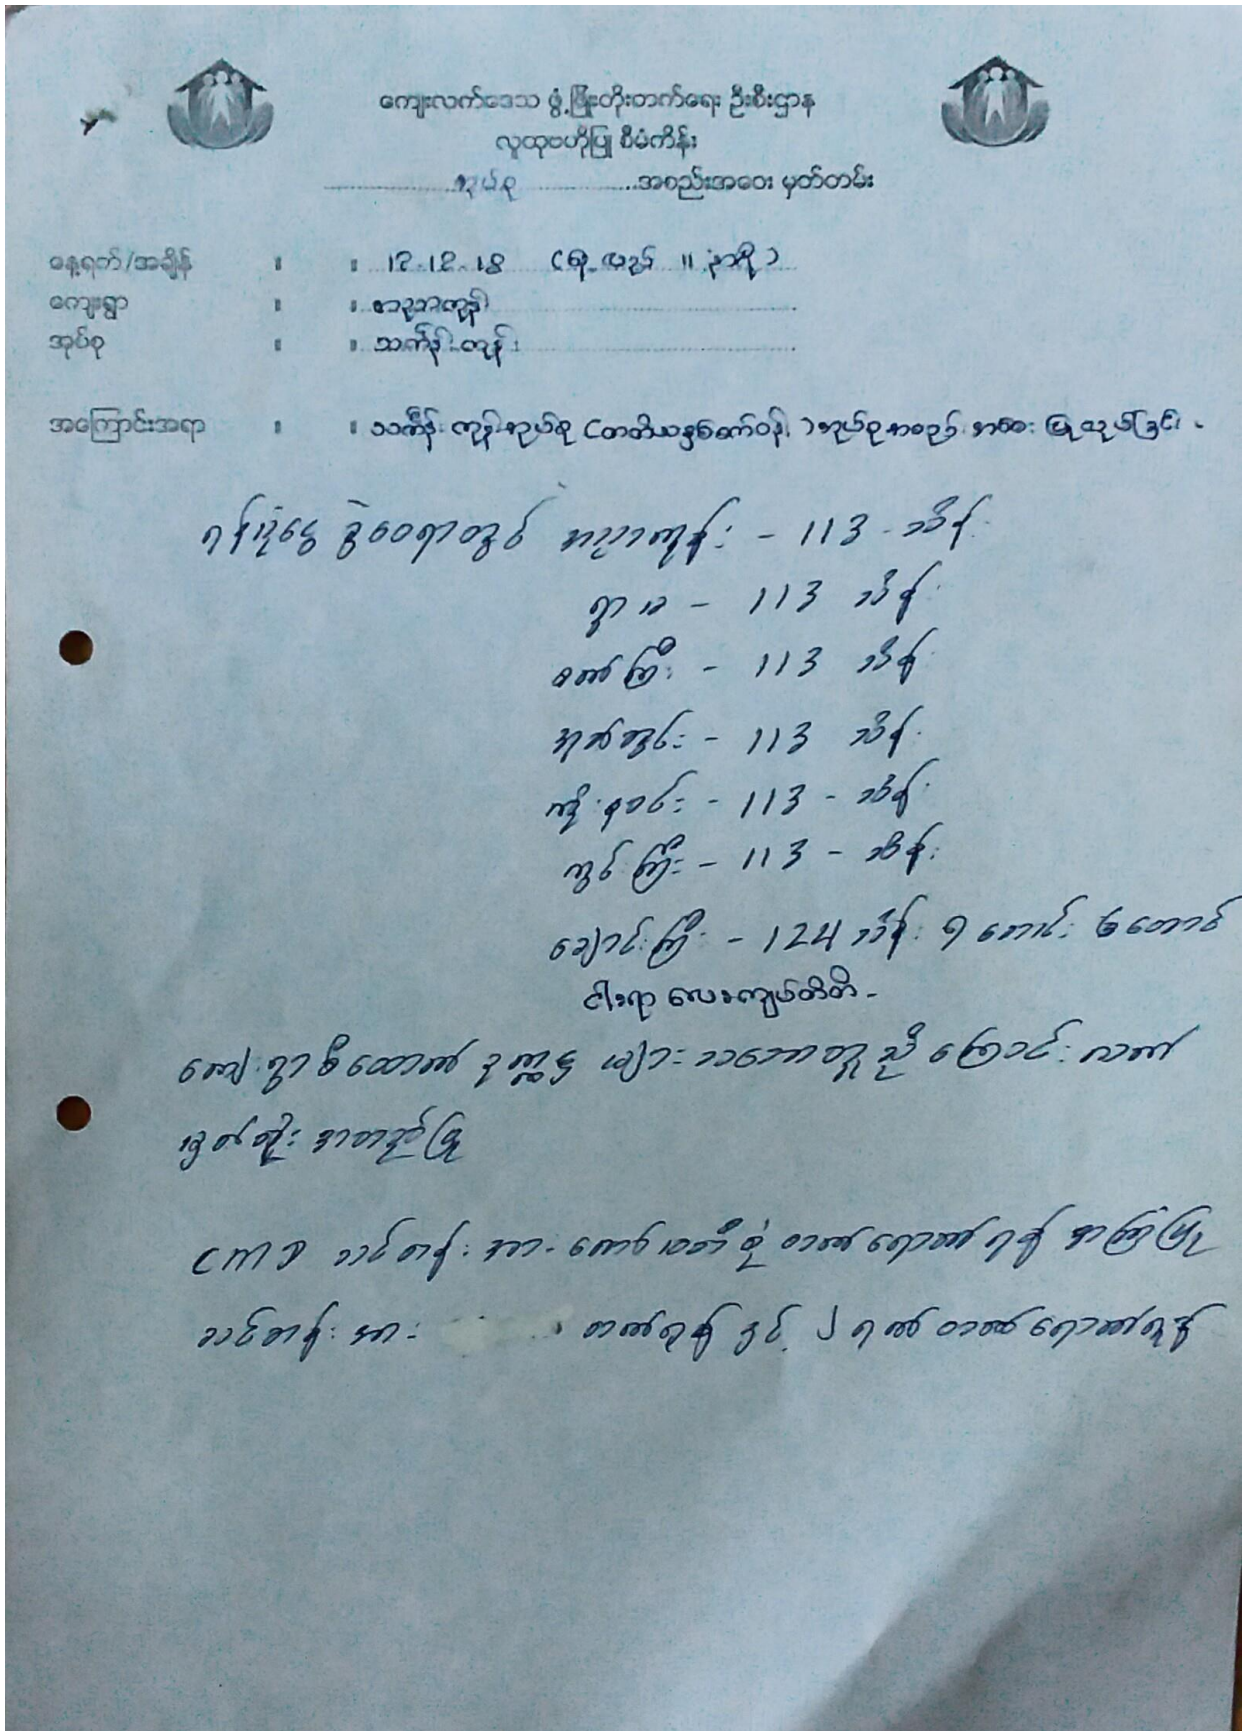 ကျေးလက်ဒေသ ဖွံ့ဖြိုးတိုးတက်ရေး ဦးစီးဌာန
လူထုဗဟိုပြု စီမံကိန်း
အုပ်စု အစည်းအဝေး မှတ်တမ်း
နေ့ရက်/အချိန် : : 12.12.18
ကျေးရွာ : :
အုပ်စု : : သင်္ကန်းကုန်း
အကြောင်းအရာ : : သင်္ကန်းကုန်းအုပ်စု အုပ်စုအစည်းအဝေး ပြုလုပ်ခြင်း
ရန်ပုံငွေ ခွဲဝေရာတွင် အညာကုန်း - 113 - သိန်း
ရွာမ - 113 သိန်း
ကြီး - 113 သိန်း
အုတ်တွင်း - 113 သိန်း
113 - သိန်း
ကွင်းကြီး - 113 - သိန်း
ချောင်းကြီး - 124 သိန်း ၇ သောင်း ၆ ထောင်
ငါးရာ လေးကျပ်တိတိ -
ကျေးရွာ စီထောက် ဥက္ကဋ္ဌ များ သဘောတူညီ ကြောင်း လက်
မှတ်ထိုး အတည်ပြု
သင်တန်း အား ကော်မတီ စုံ တက်ရောက် ရန် အကြံပြု
သင်တန်း အား တက်ရန် နှင့် ၂ ရက် တက်ရောက်ရန်